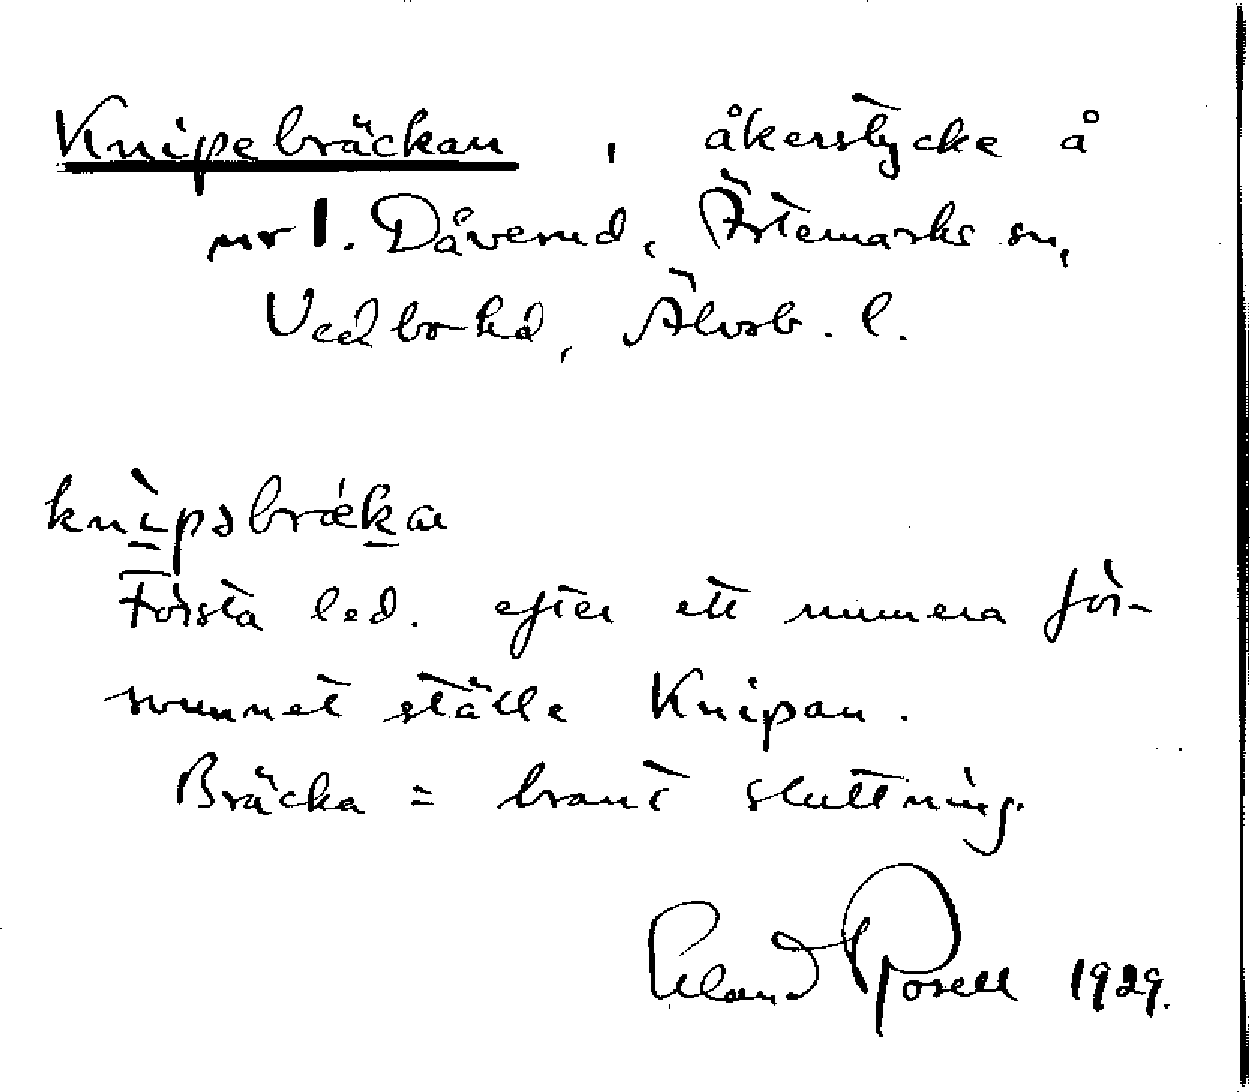 Knipebräckan, åkerstycke å
nr 1. Dåverud, Ärtemarks sn,
Vedbo hd, Älvsb. l.
knìpəbrǽka
Första led. efter ett numera för-
svunnet ställe Knipan.
Bräcka = brant sluttning.
Rosell 1929.